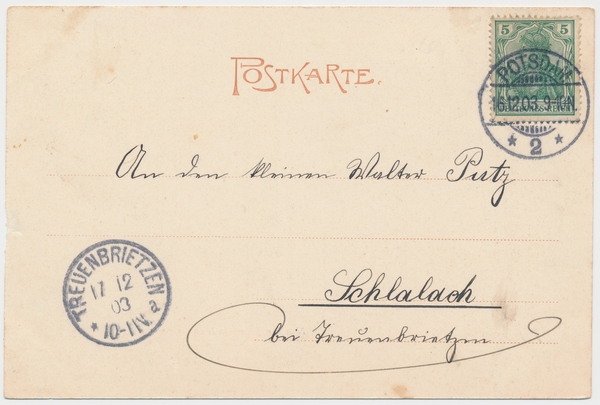 POSTKARTE.
5 5
POTSDAM
16.12.03. 9-10N.
* 2 *
An den kleinen Walter Putz
TREUENBRIETZEN
17 12
03
* 10-11V. a
Schlalach
bei Treuenbrietzen